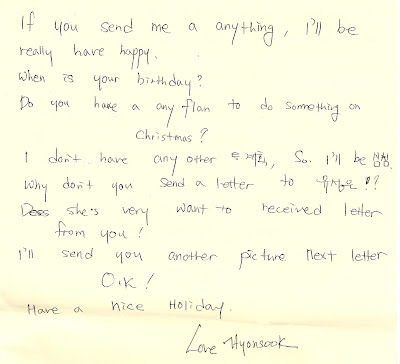 If you send me a anything, I'll be
really have happy.
When is your birthday?
Do you have a any plan to do something on
Christmas?
I don't have any other 계획, So. I'll be 심심
Why don't you send a letter to !?
Does she's very want to received letter
from you!
I'll send you another picture Next letter
O.K!
Have a nice Holiday.
Love Hyonsook